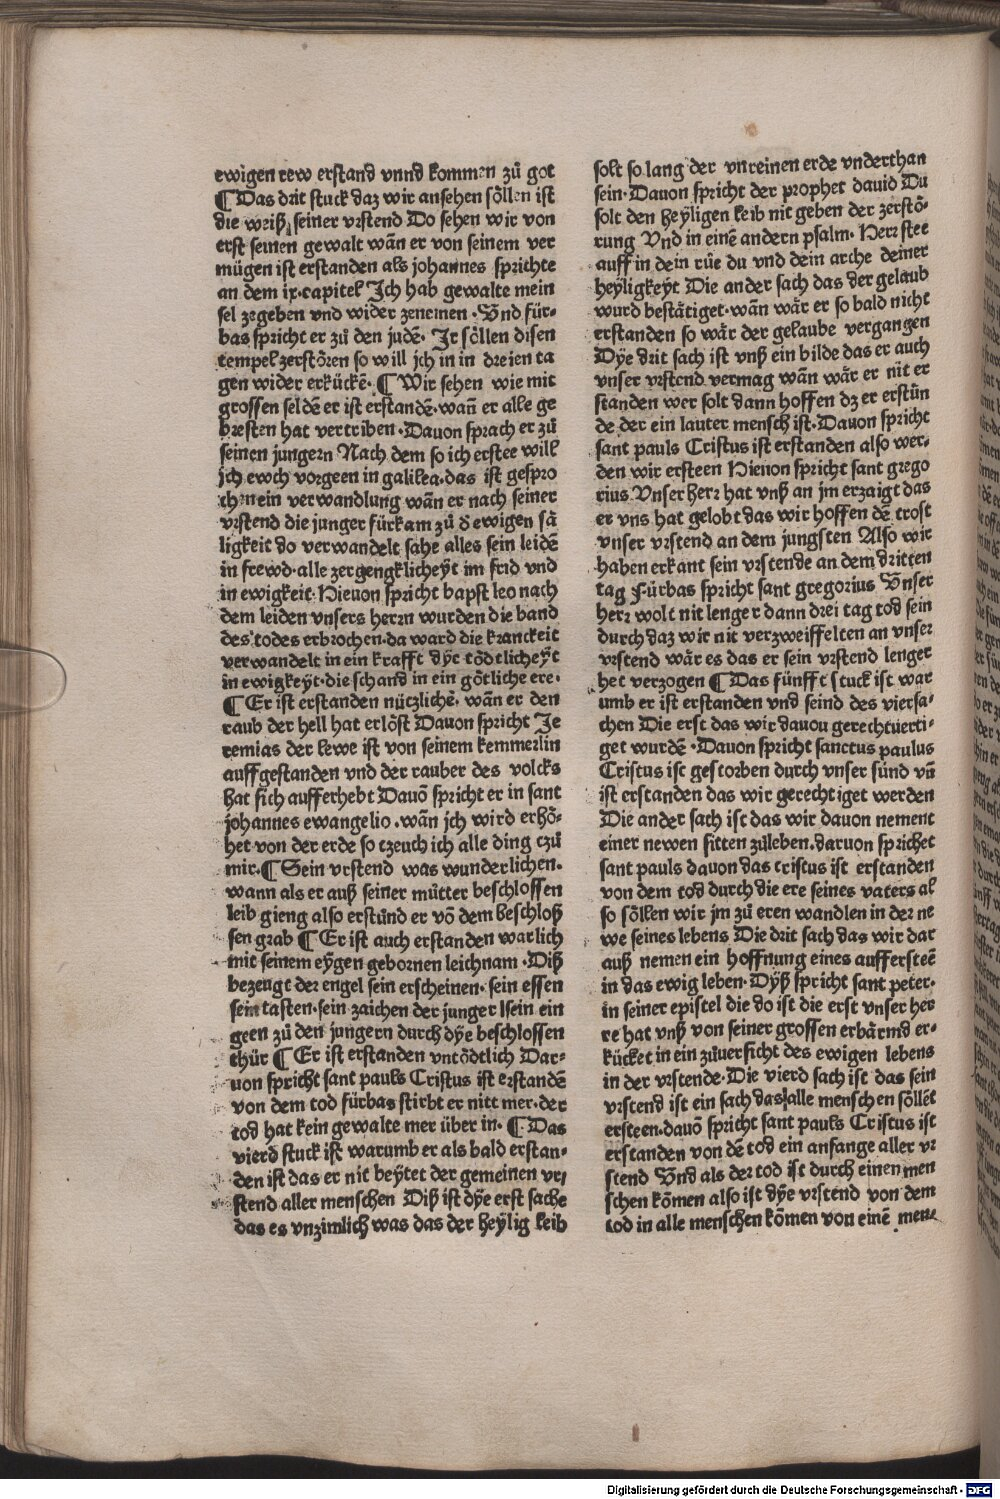 ewigen rew erstand vnnd kommen zů got
¶Das drit stuck daz wir ansehen söllen ist
die weiß seiner vrstend Do sehen wir von
erst seinen gewalt wañ er von seinem ver
mügen ist erstanden als johannes sprichte
an dem ix·capitel Jch hab gewalte mein
sel zegeben vnd wider zenemen·Vnd für-
bas spricht er zů den judē· Jr söllen disen
tempel zerstören so will jch in in dreien ta
gen wider erkückē·¶Wir sehen wie mit
grossen seldē er ist erstandē·wañ er alle ge
bresten hat vertriben·Dauon sprach er zů
seinen jungern Nach dem so ich erstee will
jch ewch vorgeen in galilea·das ist gespro
chen ein verwandlung wañ er nach seiner
vrstend die junger fürkam zů d ewigen sä
ligkeit do verwandelt sahe alles sein leidē
in frewd·alle zergengklicheyt im frid vnd
in ewigkeit·Hieuon spricht bapst leo nach
dem leiden vnsers herrn wurden die band
des todes erbrochen·da ward die kranckeit
verwandelt in ein krafft dye tödtlicheyt
in ewigkeyt·die schand in ein götliche ere·
¶Er ist erstanden nützlichē·wañ er den
raub der hell hat erlöst Dauon spricht Je
remias der lewe ist von seinem kemmerlin
auffgestanden vnd der rauber des volcks
hat sich aufferhebt Dauō spricht er in sant
johannes ewangelio·wañ jch wird erhö-
het von der erde so tzeuch ich alle ding czů
mir·¶Sein vrstend was wunderlichen·
wann als er auß seiner můtter beschlossen
leib gieng also erstůnd er vō dem beschloß
sen grab ¶Er ist auch erstanden warlich
mit seinem eygen gebornen leichnam·Diß
bezeugt der engel sein erscheinen·sein essen
sein tasten·sein zaichen der junger sein ein
geen zů den jungern durch dye beschlossen
thür ¶Er ist erstanden vntödtlich Dar-
uon spricht sant pauls Cristus ist erstandē
von dem tod fürbas stirbt er nitt mer·der
tod hat kein gewalte mer über in·¶Das
vierd stuck ist warumb er als bald erstan-
den ist das er nit beytet der gemeinen vr
stend aller menschen Diß ist dye erst sache
das es vnzimlich was das der heylig leib
solt so lang der vnreinen erde vnderthan
sein·Dauon spricht der prophet dauid Du
solt den heyligen leib nit geben der zerstö-
rung Vnd in einē andern psalm·Herr stee
auff in dein růe du vnd dein arche deiner
heyligkeyt Die ander sach das der gelaub
wurd bestätiget·wañ wär er so bald nicht
erstanden so wär der gelaube vergangen
Dye drit sach ist vnß ein bilde das er auch
vnser vrstend vermag wañ wär er nit er
standen wer solt dann hoffen dz er erstün
de der ein lauter mensch ist·Dauon spricht
sant pauls Cristus ist erstanden also wer-
den wir ersteen Hieuon spricht sant grego
rius Vnser herr hat vnß an jm erzaigt das
er vns hat gelobt das wir hoffen dē trost
vnser vrstend an dem jungsten Also wir
haben erkant sein vrstende an dem dritten
tag Fürbas spricht sant gregorius Vnser
herr wolt nit lenger dann drei tag tod sein
durch daz wir nit verzweiffelten an vnser
vrstend wär es das er sein vrstend lenger
het verzogen ¶Das fünfft stuck ist war
umb er ist erstanden vnd seind des viersa-
chen Die erst das wir dauon gerechtuerti-
get wurdē·Dauon spricht sanctus paulus
Cristus ist gestorben durch vnser sünd vñ
ist erstanden das wir gerechtiget werden
Die ander sach ist das wir dauon nement
einer newen sitten zůleben·daruon sprichet
sant pauls dauon das cristus ist erstanden
von dem tod durch die ere seines vaters al
so söllen wir jm zů eren wandlen in der ne
we seines lebens Die drit sach das wir dar
auß nemen ein hoffnung eines auffersteē
in das ewig leben·Dyß spricht sant peter·
in seiner epistel die do ist die erst vnser her
re hat vnß von seiner grossen erbärmd er-
kücket in ein zůuersicht des ewigen lebens
in der vrstende·Die vierd sach ist das sein
vrstend ist ein sach das alle menschen söllēt
ersteen·dauō spricht sant pauls Cristus ist
erstanden von dē tod ein anfange aller vr
stend Vnd als der tod ist durch einen men
schen kōmen also ist dye vrstend von dem
tod in alle menschen kōmen von einē men-
Digitalisierung gefördert durch die Deutsche Forschungsgemeinschaft - DFG